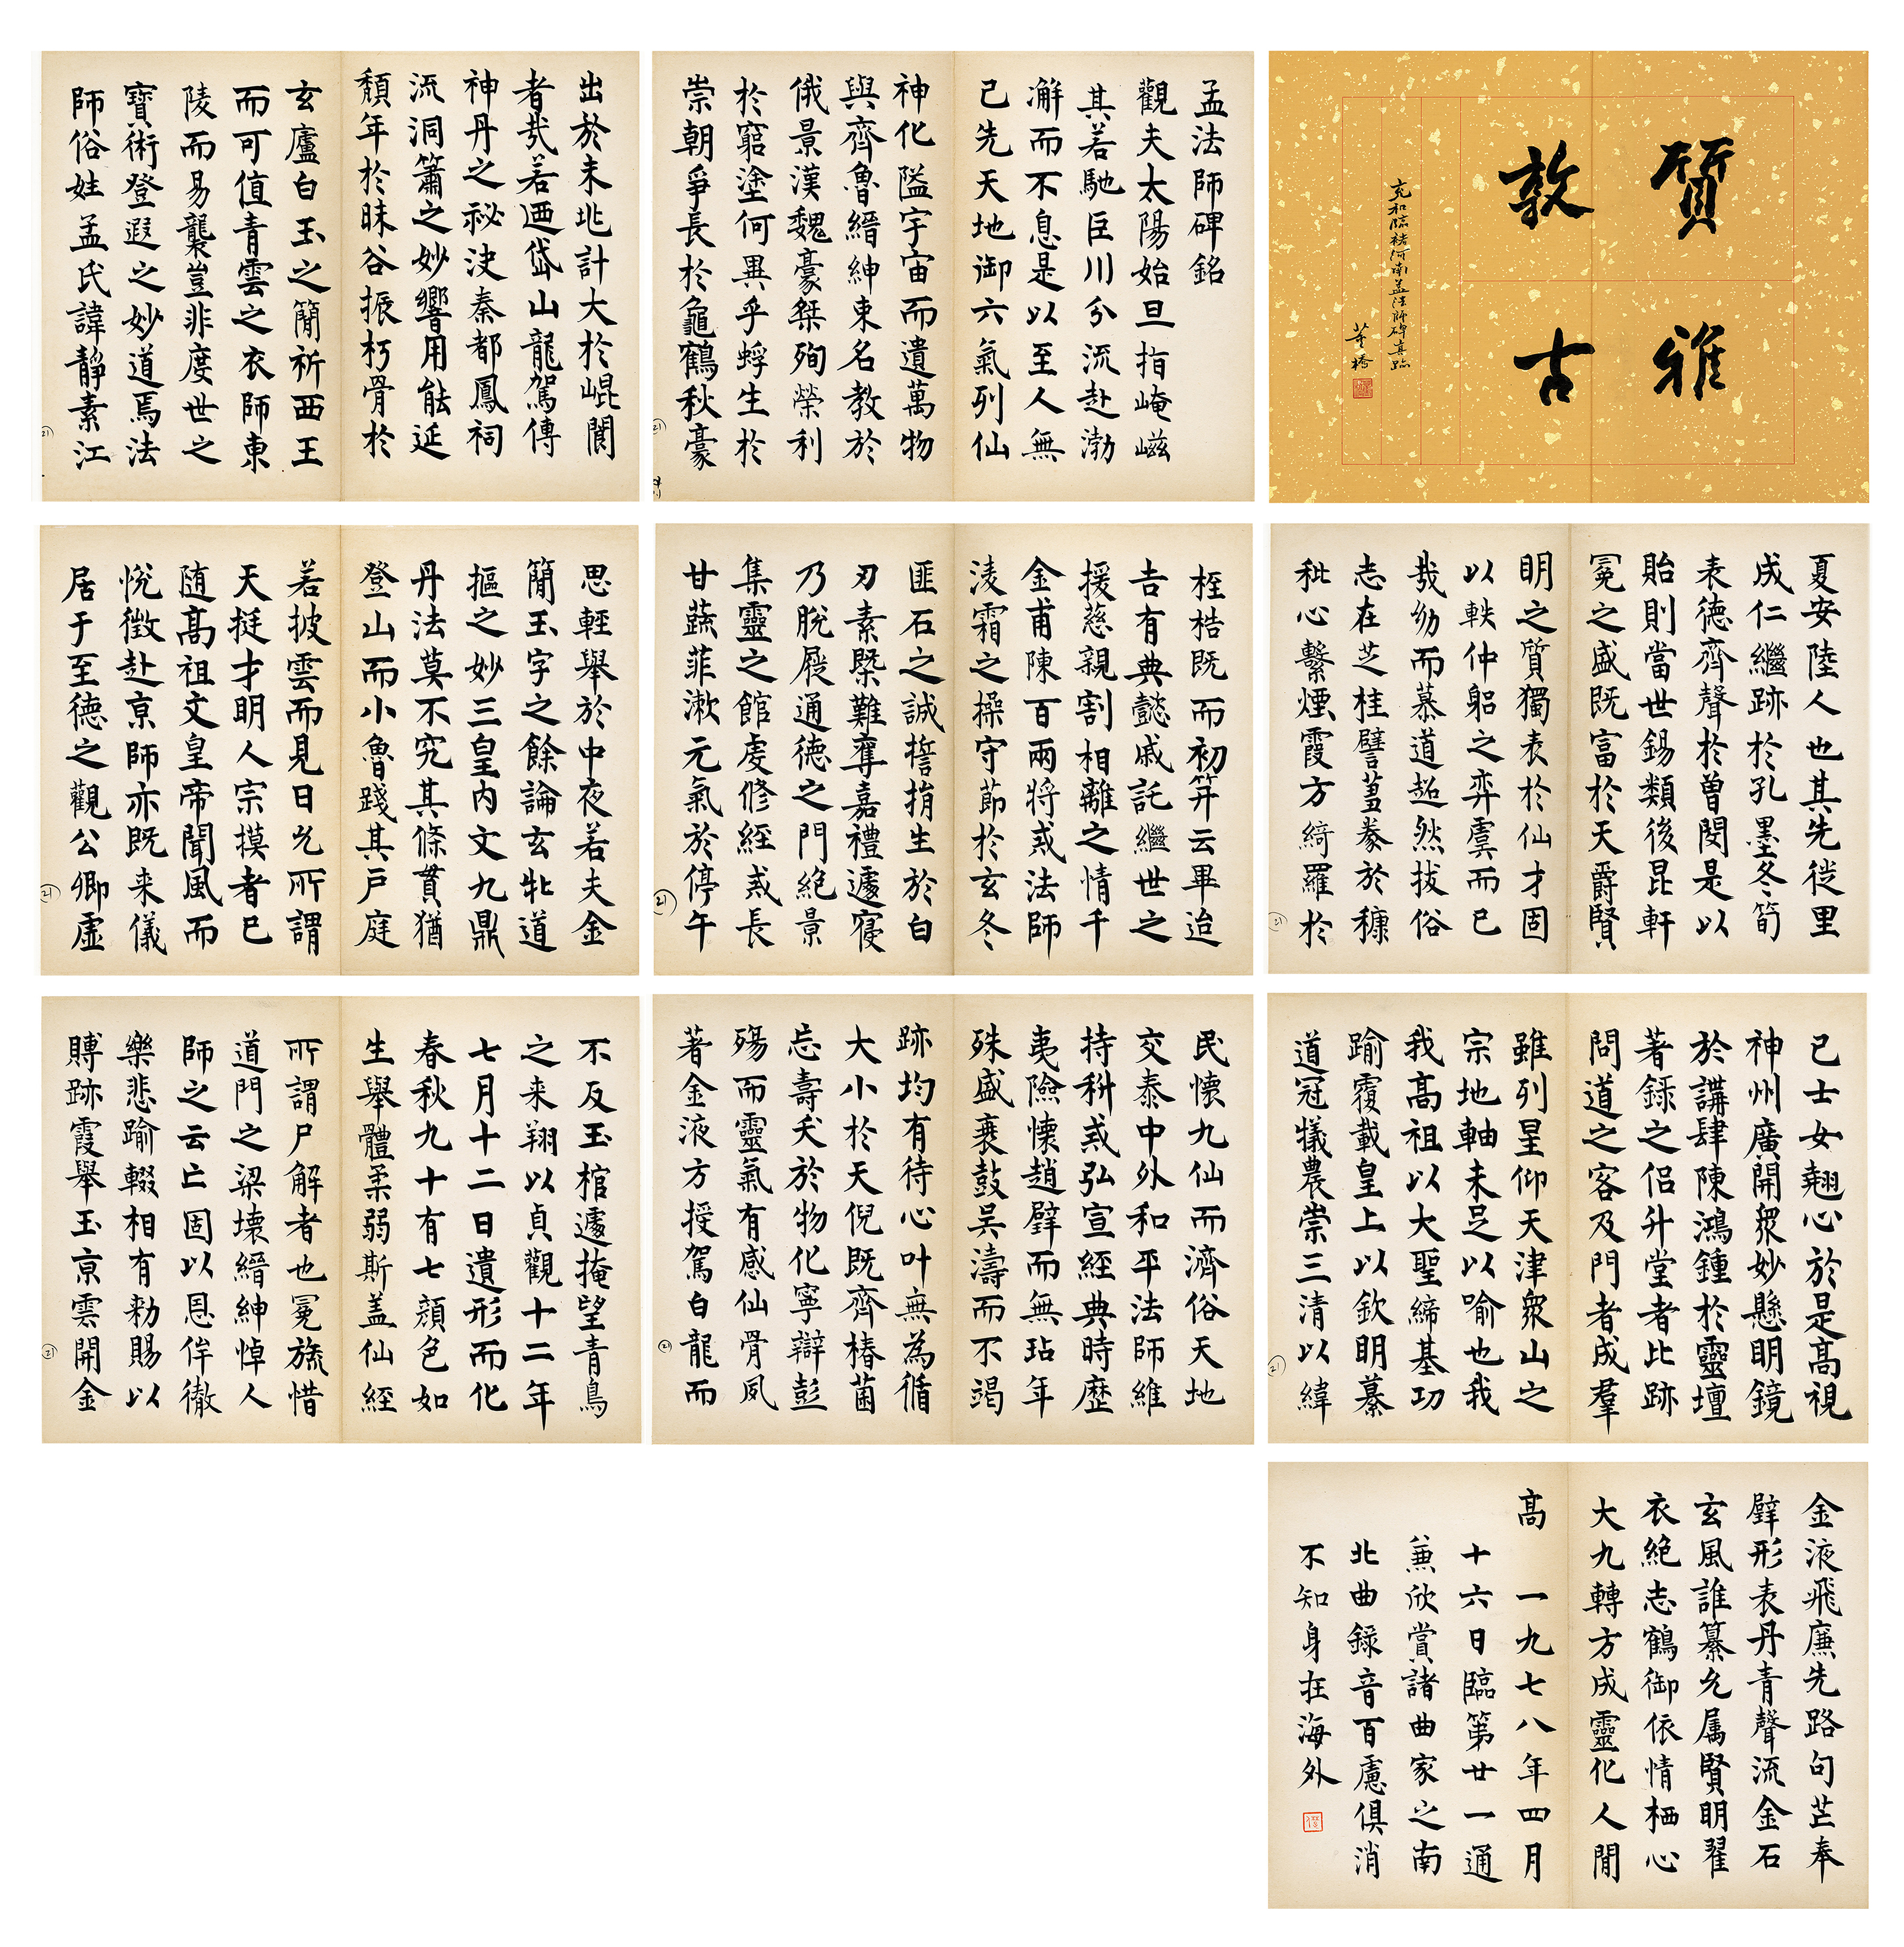 質雅
敦古
充和臨褚河南孟法師碑真跡
董橋
孟法師碑銘
觀夫太陽始旦指崦嵫
其若馳巨川分流赴渤
澥而不息是以至人無
己先天地御六氣列仙
神化隘宇宙而遺萬物
與齊魯縉紳東名教於
俄景漢魏豪桀殉榮利
於窮塗何異乎蜉生於
崇朝爭長於龜鶴秋豪
出於未兆計大於崐閬
者哉若迺岱山龍駕傳
神丹之祕決秦都鳳祠
流洞簫之妙響用能延
頹年於昧谷振朽骨於
玄廬白玉之簡祈西王
而可值青雲之衣師東
陵而易襲豈非度世之
寶術登遐之妙道焉法
師俗姓孟氏諱靜素江
夏安陸人也其先徙里
成仁繼跡於孔墨冬笋
表德齊聲於曾閔是以
貽則當世錫類後昆軒
冕之盛既富於天爵賢
明之質獨表於仙才固
以軼仲躬之弈虞而已
哉幼而慕道超然拔俗
志在芝桂譬菖豢於糠
秕心繫煙霞方綺羅於
桎梏既而初笄云畢迨
吉有典懿戚託繼世之
援慈親割相離之情千
金甫陳百兩將戒法師
淩霜之操守節於玄冬
匪石之誠誓捐生於白
刃素槩難奪嘉禮遽寢
乃脫屣通德之門絕景
集靈之館虔修經戒長
甘蔬菲漱元氣於停午
思輕舉於中夜若夫金
簡玉字之餘論玄牝道
摳之妙三皇內文九鼎
丹法莫不究其條貫猶
登山而小魯踐其戶庭
若披雲而見日允所謂
天挺才明人宗摸者已
隨高祖文皇帝聞風而
悅徵赴京師亦既来儀
居于至德之觀公卿虛
己士女翹心於是高視
神州廣開衆妙懸明鏡
於講肆陳鴻鍾於靈壇
著錄之侶升堂者比跡
問道之客及門者成羣
雖列星仰天津衆山之
宗地軸未足以喻也我
我高祖以大聖締基功
踰覆載皇上以欽明纂
道冠犧農崇三清以緯
民懷九仙而濟俗天地
交泰中外和平法師維
持科戒弘宣經典時歷
夷險懷趙璧而無玷年
殊盛衰鼓吴濤而不竭
跡均有待心叶無為循
大小於天倪既齊椿菌
忘壽夭於物化寧辯彭
殤而靈氣有感仙骨夙
著金液方授駕白龍而
不反玉棺遽掩望青鳥
之来翔以貞觀十二年
七月十二日遺形而化
春秋九十有七顏色如
生舉體柔弱斯盖仙經
所謂尸解者也冕旒惜
道門之梁壞縉紳悼人
師之云亡固以恩侔徹
樂悲踰輟相有勑賜以
賻跡霞舉玉京雲開金
金液飛廉先路句芒奉
璧形表丹青聲流金石
玄風誰纂允属賢明翟
衣絕志鶴御依情栖心
大九轉方成靈化人閒
高　一九七八年四月
十六日臨第廿一通
兼欣賞諸曲家之南
北曲錄音百慮俱消
不知身在海外